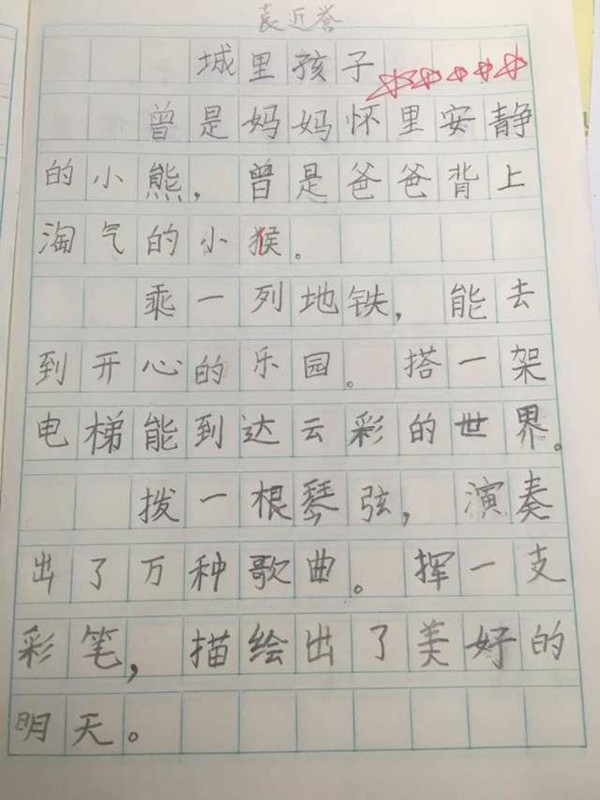 袁近誉
城里孩子
曾是妈妈怀里安静
的小熊，曾是爸爸背上
淘气的小猴。
乘一列地铁，能去
到开心的乐园。搭一架
电梯能到达云彩的世界。
拨一根琴弦，演奏
出了万种歌曲。挥一支
彩笔，描绘出了美好的
明天。